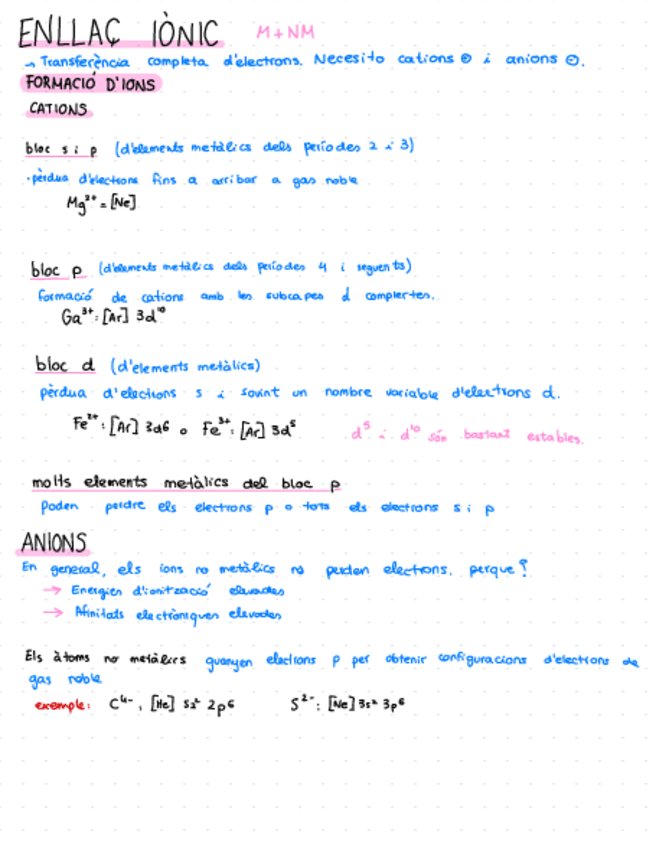 ENLLAÇ IÒNIC M+NM
→ Transferència completa d'electrons. Necesito cations ⊕ i anions ⊖.
FORMACIÓ D'IONS
CATIONS
bloc s i p (d'elements metàlics dels períodes 2 i 3)
·pèrdua d'electrons fins a arribar a gas noble
Mg²⁺ = [Ne]
bloc p (d'elements metàlics dels períodes 4 i seguents)
formació de cations amb les subcapes d complertes.
Ga³⁺: [Ar] 3d¹⁰
bloc d (d'elements metàlics)
pèrdua d'electrons s i sovint un nombre variable d'electrons d.
Fe²⁺: [Ar] 3d6 o Fe³⁺: [Ar] 3d⁵ d⁵ i d¹⁰ són bastant estables.
molts elements metàlics del bloc p
Poden perdre els electrons p o tots els electrons s i p
ANIONS
En general, els ions no metàlics no perden electrons. perque?
→ Energies d'ionització elevades
→ Afinitats electròniques elevades
Els àtoms no metàlics guanyen electrons p per obtenir configuracions d'electrons de
gas noble
exemple: C⁴⁻, [He] s2² 2p6 S²⁻: [Ne] 3s² 3p6